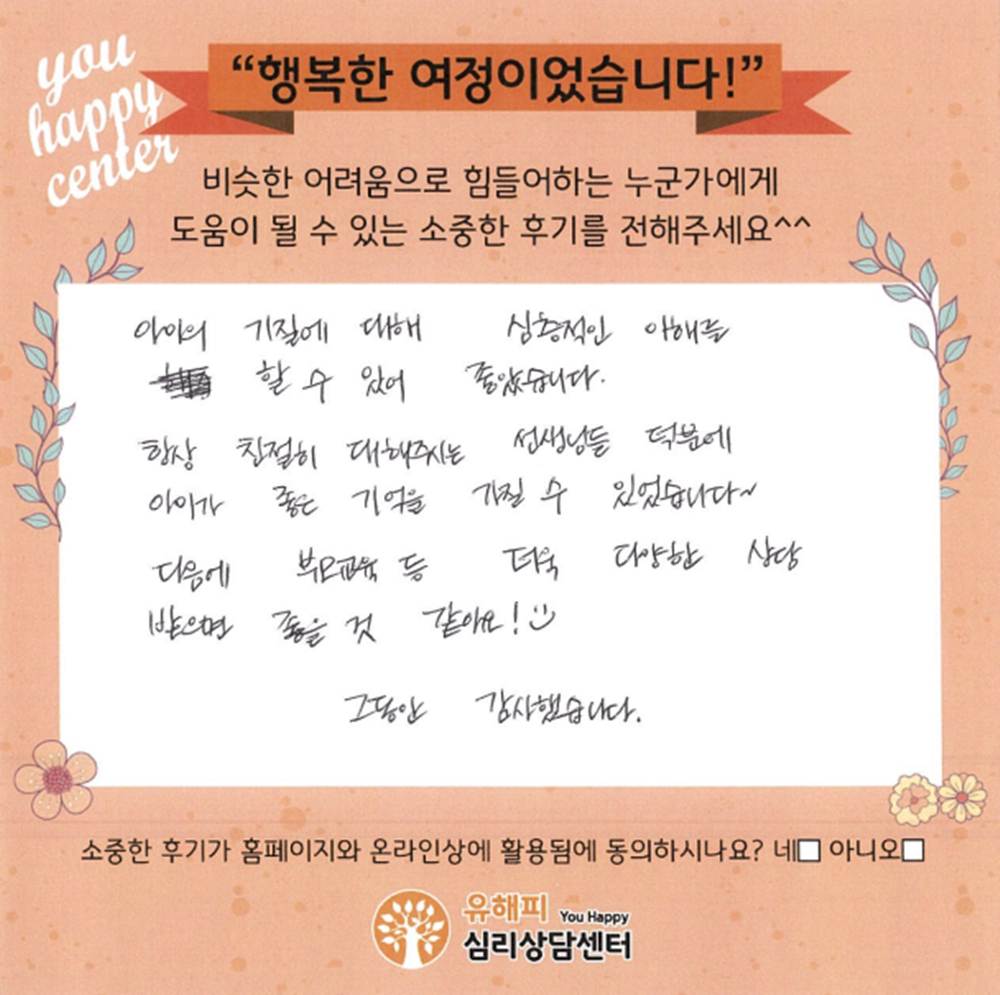 you
happy
center
“행복한 여정이었습니다!”
비슷한 어려움으로 힘들어하는 누군가에게
도움이 될 수 있는 소중한 후기를 전해주세요^^
아이의 기질에 대해 심층적인 이해를
할 수 있어 좋았습니다.
항상 친절히 대해주시는 선생님들 덕분에
아이가 좋은 기억을 가질 수 있었습니다~
다음에 부모교육 등 더욱 다양한 상담
받으면 좋을 것 같아요!
그동안 감사했습니다.
소중한 후기가 홈페이지와 온라인상에 활용됨에 동의하시나요? 네□ 아니오□
유해피 You Happy
심리상담센터